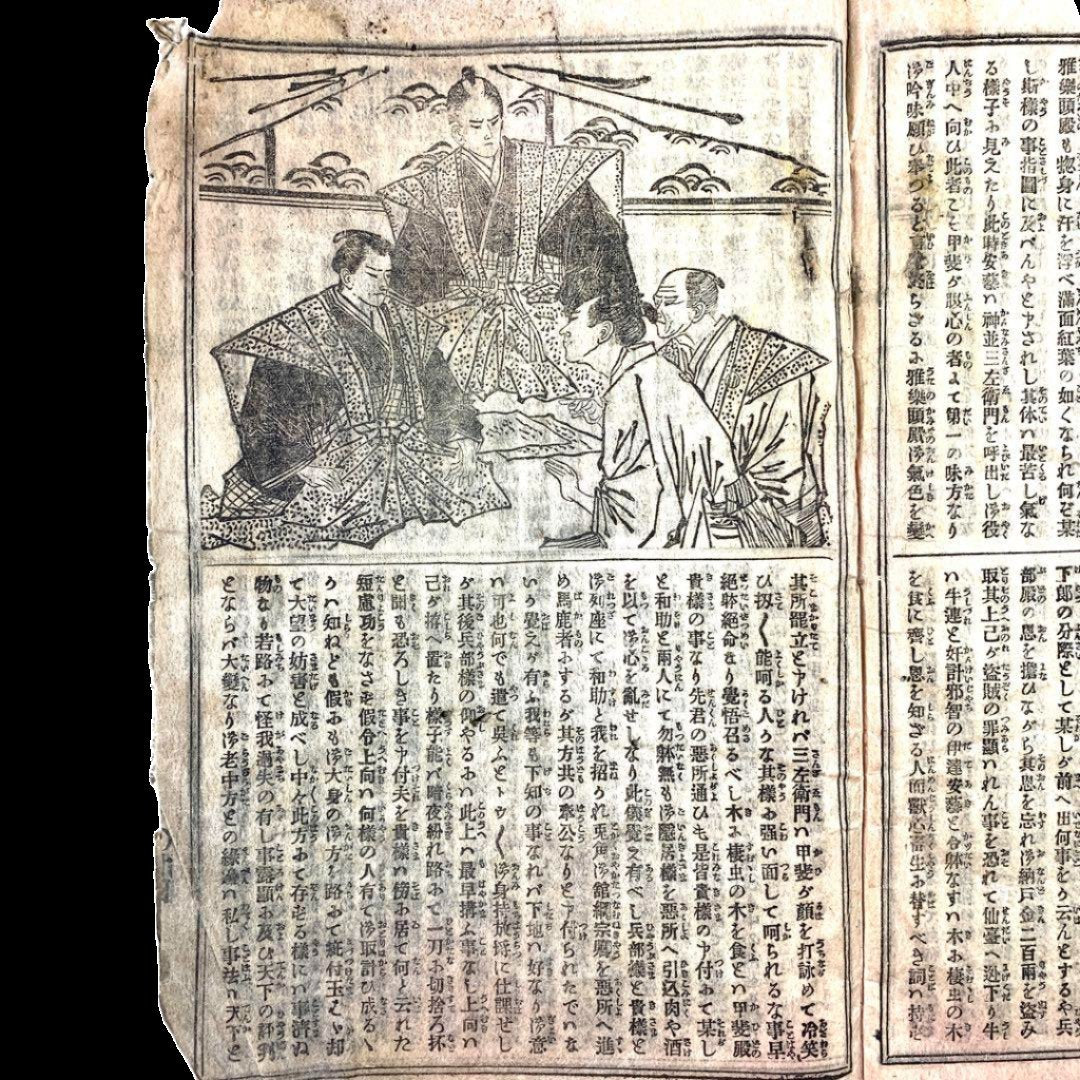 雅樂頭殿も惣身に汗を浮べ滿面紅葉の如くなられ何ぞ某
し斯樣の事指圖に及べんやとアされし其体ハ最苦し氣な
る樣子み見えたり此時安藝ハ神並三左衛門を呼出し御役
人中へ向ひ此者こそ甲斐が腹心の者よて第一の味方なり
御吟味願ひ奉つると
らざるみ雅樂頭殿御氣色を變
下郎の分際として某しが前へ出何事をか云んとするや兵
部殿の恩を擔ひながら其恩を忘れ御納戸金二百兩を盗み
取其上己が盗賊の罪顯ハれん事を恐れて仙臺へ迯下り牛
ハ牛連と奸計邪智の伊達安藝と合躰なすハ木み棲虫の木
を食に齊し恩を知ざる人面獸心畜生み替すべき詞ハ持ず
其所罷立とアけれバ三左衛門ハ甲斐が顏を打詠めて冷笑
ひ扨〱能呵る人かな其樣み强い面して呵られるな事早
絶躰絶命なり覺悟召るべし木み棲虫の木を食とハ甲斐殿
貴樣の事なり先君の惡所通ひも是皆貴樣のア付みて某し
と和助と兩人にて勿躰無も御隱居樣を惡所へ引込肉や酒
を以て御心を亂せしなり此儀覺え有べし兵部樣と貴樣と
御列座にて和助と我を招かれ兎角御舘綱宗鷹を惡所へ進
め馬鹿者みするが其方共の奉公なりとア付られたでハな
いか覺えが有ふ我等も下知の事なれバ下地ハ好なり御意
ハ可也何でも遣て呉ふとトゥ〱御身持放埓に仕課せし
が其後兵部樣の仰やるみハ此上ハ最早搆ふ事なし上向ハ
己が濟へ置たり樣子能バ暗夜紛れ路みて一刀み切捨ろ抔
と聞も恐ろしき事をア付夫を貴樣ハ傍み居て何と云れた
短慮功をなさず假令上向ハ何樣の人有て御取計ひ成るゝ
かハ知ねども假みも御大身の御方を路みて疵付玉ひゝ却
て大望の妨害と成べし中々此方みて存寄る樣にハ事濟ぬ
物なり若路みて怪我過失の有し事露顯み及び天下の評判
とならバ大變なり御老中方との緣論ハ私し事法ハ天下と